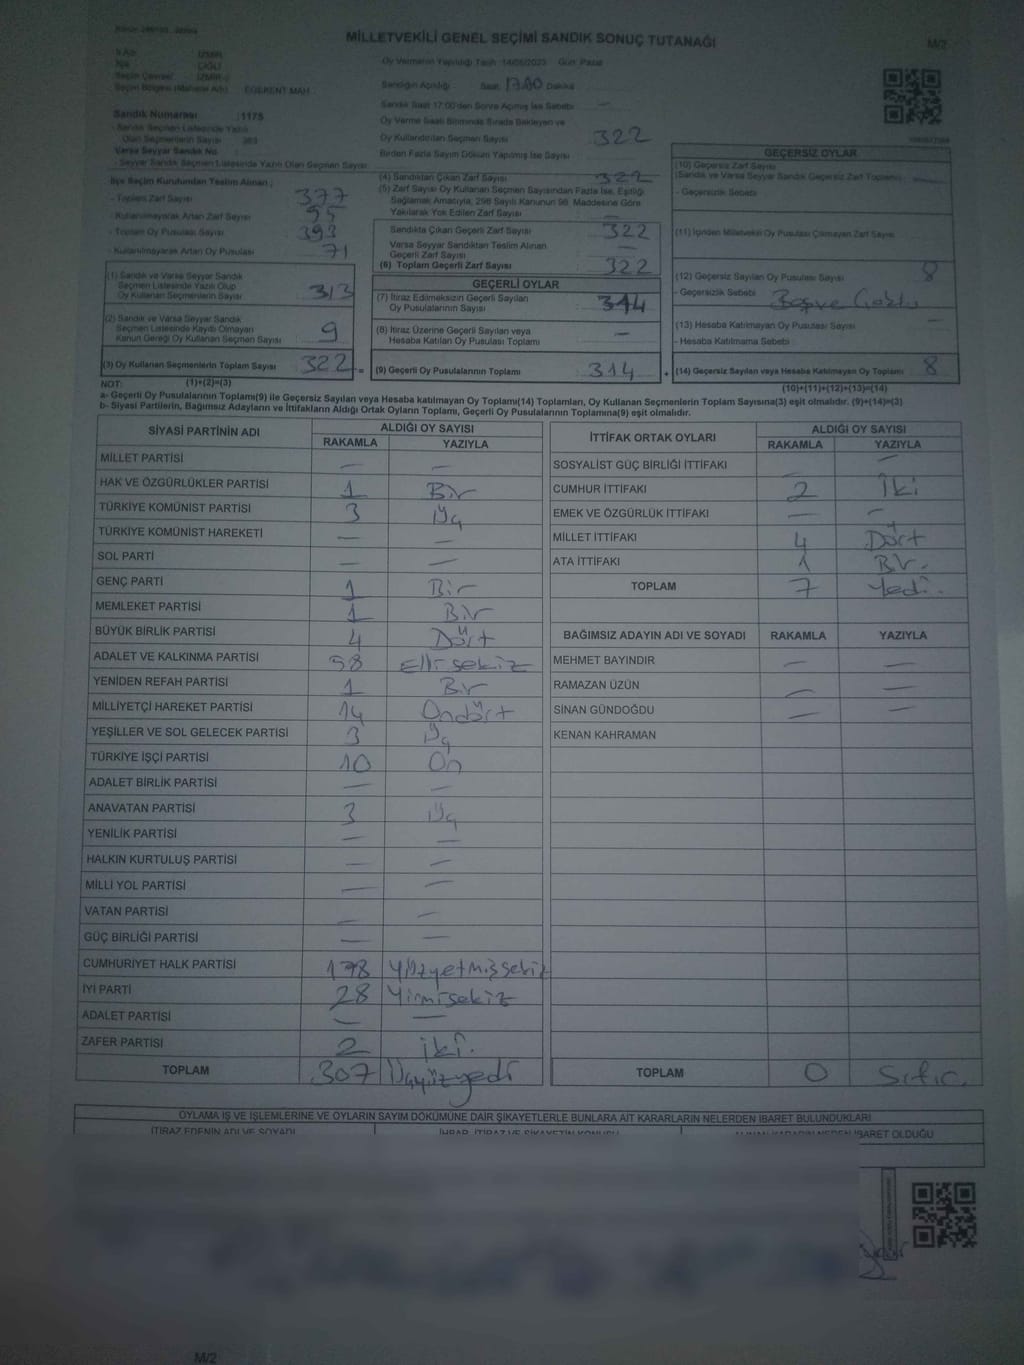 MİLLETVEKİLİ GENEL SEÇİMİ SANDIK SONUÇ TUTANAĞI
M/2
İli Adı İZMİR
İlçe ÇİĞLİ
Seçim Çevresi İZMİR-2
Seçim Bölgesi (Mahalle Adı) EGEKENT MAH.
Oy Vermenin Yapıldığı Tarih :14/05/2023 Gün: Pazar
Sandığın Açıldığı Saat: 17.00 Dakika
Sandık Saat 17:00'den Sonra Açılmış İse Sebebi —
Oy Verme Saati Bitiminde Sırada Bekleyen ve
Oy Kullandırılan Seçmen Sayısı 322
Birden Fazla Sayım Döküm Yapılmış İse Sayısı
Sandık Numarası :1175
- Sandık Seçmen Listesinde Yazılı
Olan Seçmenlerin Sayısı : 363
Varsa Seyyar Sandık No :
- Seyyar Sandık Seçmen Listesinde Yazılı Olan Seçmen Sayısı
İlçe Seçim Kurulundan Teslim Alınan ;
- Toplam Zarf Sayısı 377
- Kullanılmayarak Artan Zarf Sayısı 55
- Toplam Oy Pusulası Sayısı 393
- Kullanılmayarak Artan Oy Pusulası 71
(1) Sandık ve Varsa Seyyar Sandık
Seçmen Listesinde Yazılı Olup
Oy Kullanan Seçmenlerin Sayısı 313
(2) Sandık ve Varsa Seyyar Sandık
Seçmen Listesinde Kayıtlı Olmayan
Kanun Gereği Oy Kullanan Seçmen Sayısı 9
(3) Oy Kullanan Seçmenlerin Toplam Sayısı 322 =
(4) Sandıktan Çıkan Zarf Sayısı 322
(5) Zarf Sayısı Oy Kullanan Seçmen Sayısından Fazla İse, Eşitliği
Sağlamak Amacıyla, 298 Sayılı Kanunun 98. Maddesine Göre
Yakılarak Yok Edilen Zarf Sayısı —
Sandıkta Çıkan Geçerli Zarf Sayısı 322
Varsa Seyyar Sandıktan Teslim Alınan
Geçerli Zarf Sayısı —
(6) Toplam Geçerli Zarf Sayısı 322
GEÇERLİ OYLAR
(7) İtiraz Edilmeksizin Geçerli Sayılan
Oy Pusulalarının Sayısı 314
(8) İtiraz Üzerine Geçerli Sayılan veya
Hesaba Katılan Oy Pusulası Toplamı —
(9) Geçerli Oy Pusulalarının Toplamı 314 +
GEÇERSİZ OYLAR
(10) Geçersiz Zarf Sayısı
(Sandık ve Varsa Seyyar Sandık Geçersiz Zarf Toplamı) —
- Geçersizlik Sebebi
(11) İçinden Milletvekili Oy Pusulası Çıkmayan Zarf Sayısı
(12) Geçersiz Sayılan Oy Pusulası Sayısı 8
- Geçersizlik Sebebi : Boş ve Çoklu
(13) Hesaba Katılmayan Oy Pusulası Sayısı —
- Hesaba Katılmama Sebebi :
(14) Geçersiz Sayılan veya Hesaba Katılmayan Oy Toplamı 8
NOT: (1)+(2)=(3) (10)+(11)+(12)+(13)=(14)
a- Geçerli Oy Pusulaları Toplamı(9) ile Geçersiz Sayılan veya Hesaba katılmayan Oy Toplamı(14) Toplamları, Oy Kullanan Seçmenlerin Toplam Sayısına(3) eşit olmalıdır. (9)+(14)=(3)
b- Siyasi Partilerin, Bağımsız Adayların ve İttifakların Aldığı Ortak Oyların Toplamı, Geçerli Oy Pusulalarının Toplamına(9) eşit olmalıdır.
SİYASİ PARTİNİN ADI ALDIĞI OY SAYISI
RAKAMLA YAZIYLA
MİLLET PARTİSİ — —
HAK VE ÖZGÜRLÜKLER PARTİSİ 1 Bir
TÜRKİYE KOMÜNİST PARTİSİ 3 Üç
TÜRKİYE KOMÜNİST HAREKETİ — —
SOL PARTİ — —
GENÇ PARTİ 1 Bir
MEMLEKET PARTİSİ 1 Bir
BÜYÜK BİRLİK PARTİSİ 4 Dört
ADALET VE KALKINMA PARTİSİ 58 Elli sekiz
YENİDEN REFAH PARTİSİ 1 Bir
MİLLİYETÇİ HAREKET PARTİSİ 14 Ondört
YEŞİLLER VE SOL GELECEK PARTİSİ 3 Üç
TÜRKİYE İŞÇİ PARTİSİ 10 On
ADALET BİRLİK PARTİSİ — —
ANAVATAN PARTİSİ 3 Üç
YENİLİK PARTİSİ — —
HALKIN KURTULUŞ PARTİSİ — —
MİLLİ YOL PARTİSİ — —
VATAN PARTİSİ — —
GÜÇ BİRLİĞİ PARTİSİ — —
CUMHURİYET HALK PARTİSİ 178 Yüzyetmişsekiz
İYİ PARTİ 28 Yirmisekiz
ADALET PARTİSİ — —
ZAFER PARTİSİ 2 iki.
TOPLAM 307 Üçyüzyedi
İTTİFAK ORTAK OYLARI ALDIĞI OY SAYISI
RAKAMLA YAZIYLA
SOSYALİST GÜÇ BİRLİĞİ İTTİFAKI —
CUMHUR İTTİFAKI 2 İki
EMEK VE ÖZGÜRLÜK İTTİFAKI — —
MİLLET İTTİFAKI 4 Dört
ATA İTTİFAKI 1 Bir.
TOPLAM 7 Yedi.
BAĞIMSIZ ADAYIN ADI VE SOYADI RAKAMLA YAZIYLA
MEHMET BAYINDIR — —
RAMAZAN ÜZÜN — —
SİNAN GÜNDOĞDU — —
KENAN KAHRAMAN
TOPLAM 0 Sıfır.
OYLAMA İŞ VE İŞLEMLERİNE VE OYLARIN SAYIM DÖKÜMÜNE DAİR ŞİKAYETLERLE BUNLARA AİT KARARLARIN NELERDEN İBARET BULUNDUKLARI
İTİRAZ EDENİN ADI VE SOYADI İHBAR, İTİRAZ VE ŞİKAYETİN KONUSU ALINAN KARARIN NEDEN İBARET OLDUĞU
M/2